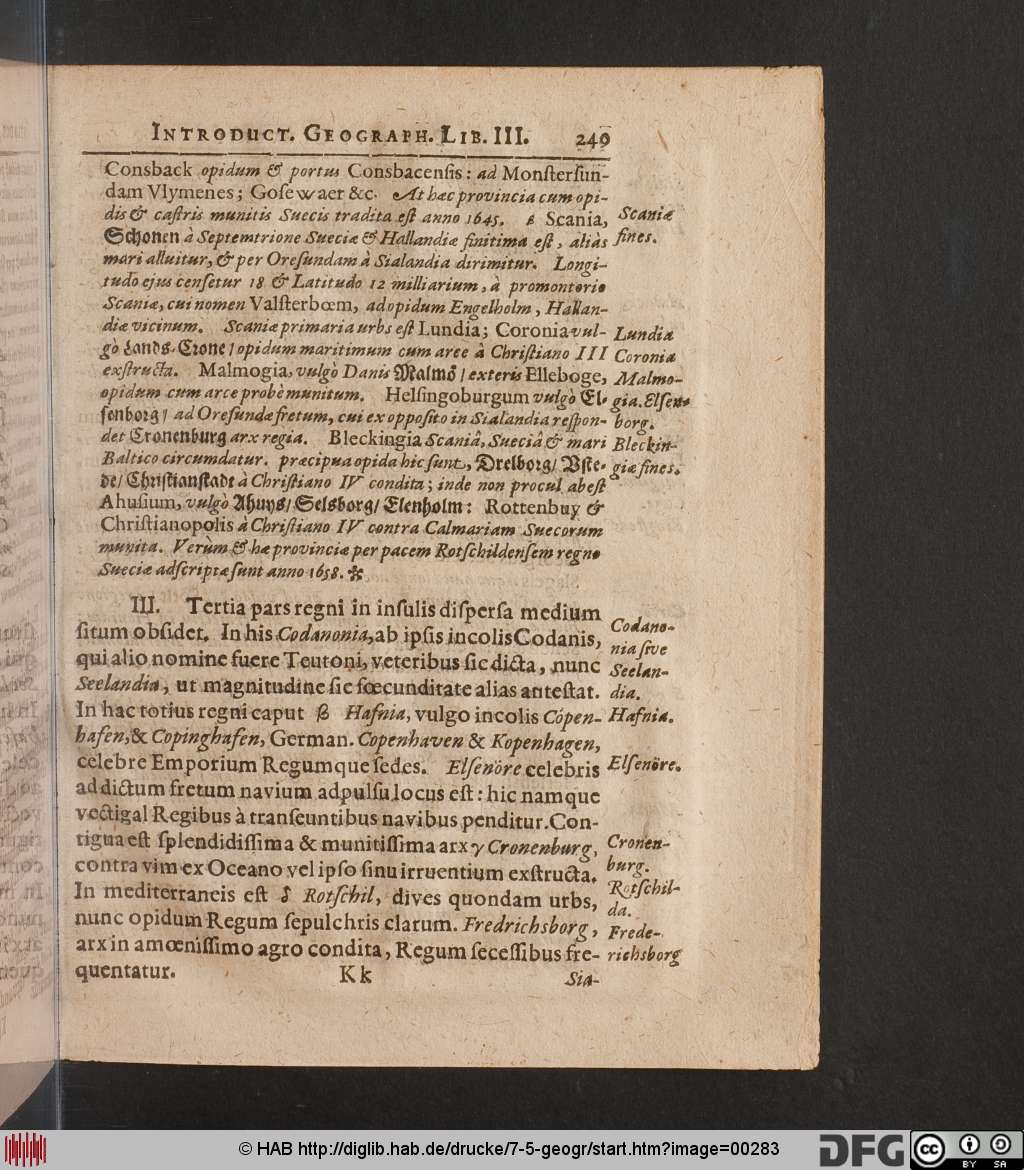 INTRODUCT. GEOGRAPH. LIB. III. 249
Consback opidum & portus Consbacensis: ad Monstersun-
dam Vlymenes; Gosewaer &c. At hæc provincia cum opi-
dis & castris munitis Suecis tradita est anno 1645. Scania,
Schonen à Septemtrione Sueciæ & Hallandiæ finitima est, aliàs
mari alluitur, & per Oresundam à Sialandia dirimitur. Longi-
tudo ejus censetur 18 & Latitudo 12 milliarium, à promontorio
Scaniæ, cui nomen Valsterbœm, ad opidum Engelholm, Hallan-
diæ vicinum. Scaniæ primaria urbs est Lundia; Coronia vul-
gò Lands-Crone/ opidum maritimum cum arce à Christiano III
exstructa. Malmogia, vulgò Danis Malmö/ exteris Elleboge,
opidum cum arce probè munitum. Helsingoburgum vulgò El-
senborg/ ad Oresundæ fretum, cui ex opposito in Sialandia respon-
det Cronenburg arx regia. Bleckingia Scaniâ, Sueciâ & mari
Baltico circumdatur. præcipua opida hic sunt, Drelborg/ Vste-
de/ Christianstadt à Christiano IV condita; inde non procul abest
Ahusium, vulgò Ahuys/ Selsborg/ Elenholm: Rottenbuy &
Christianopolis à Christiano IV contra Calmariam Suecorum
munita. Verùm & hæ provinciæ per pacem Rotschildensem regno
Sueciæ adscriptæ sunt anno 1658.
Scaniæ
fines.
Lundia
Coronia
Malmo-
gia. Elsen-
borg.
Bleckin-
giæ fines.
III. Tertia pars regni in insulis dispersa medium
situm obsidet. In his Codanonia, ab ipsis incolis Codanis,
qui alio nomine fuere Teutoni, veteribus sic dicta, nunc
Seelandia, ut magnitudine sic fœcunditate alias antestat.
In hac totius regni caput β Hafnia, vulgo incolis Cópen-
hafen, & Copinghafen, German. Copenhaven & Kopenhagen,
celebre Emporium Regumque sedes. Elsenöre celebris
ad dictum fretum navium adpulsu locus est: hic namque
vectigal Regibus à transeuntibus navibus penditur. Con-
tigua est splendidissima & munitissima arx γ Cronenburg,
contra vim ex Oceano vel ipso sinu irruentium exstructa.
In mediterraneis est δ Rotschil, dives quondam urbs,
nunc opidum Regum sepulchris clarum. Fredrichsborg,
arx in amœnissimo agro condita, Regum secessibus fre-
quentatur.
Codano-
nia sive
Seelan-
dia.
Hafnia.
Elsenöre.
Cronen-
burg.
Rotschil-
da.
Frede-
richsborg
Kk Sia-
© HAB http://diglib.hab.de/drucke/7-5-geogr/start.htm?image=00283
DFG
cc BY SA